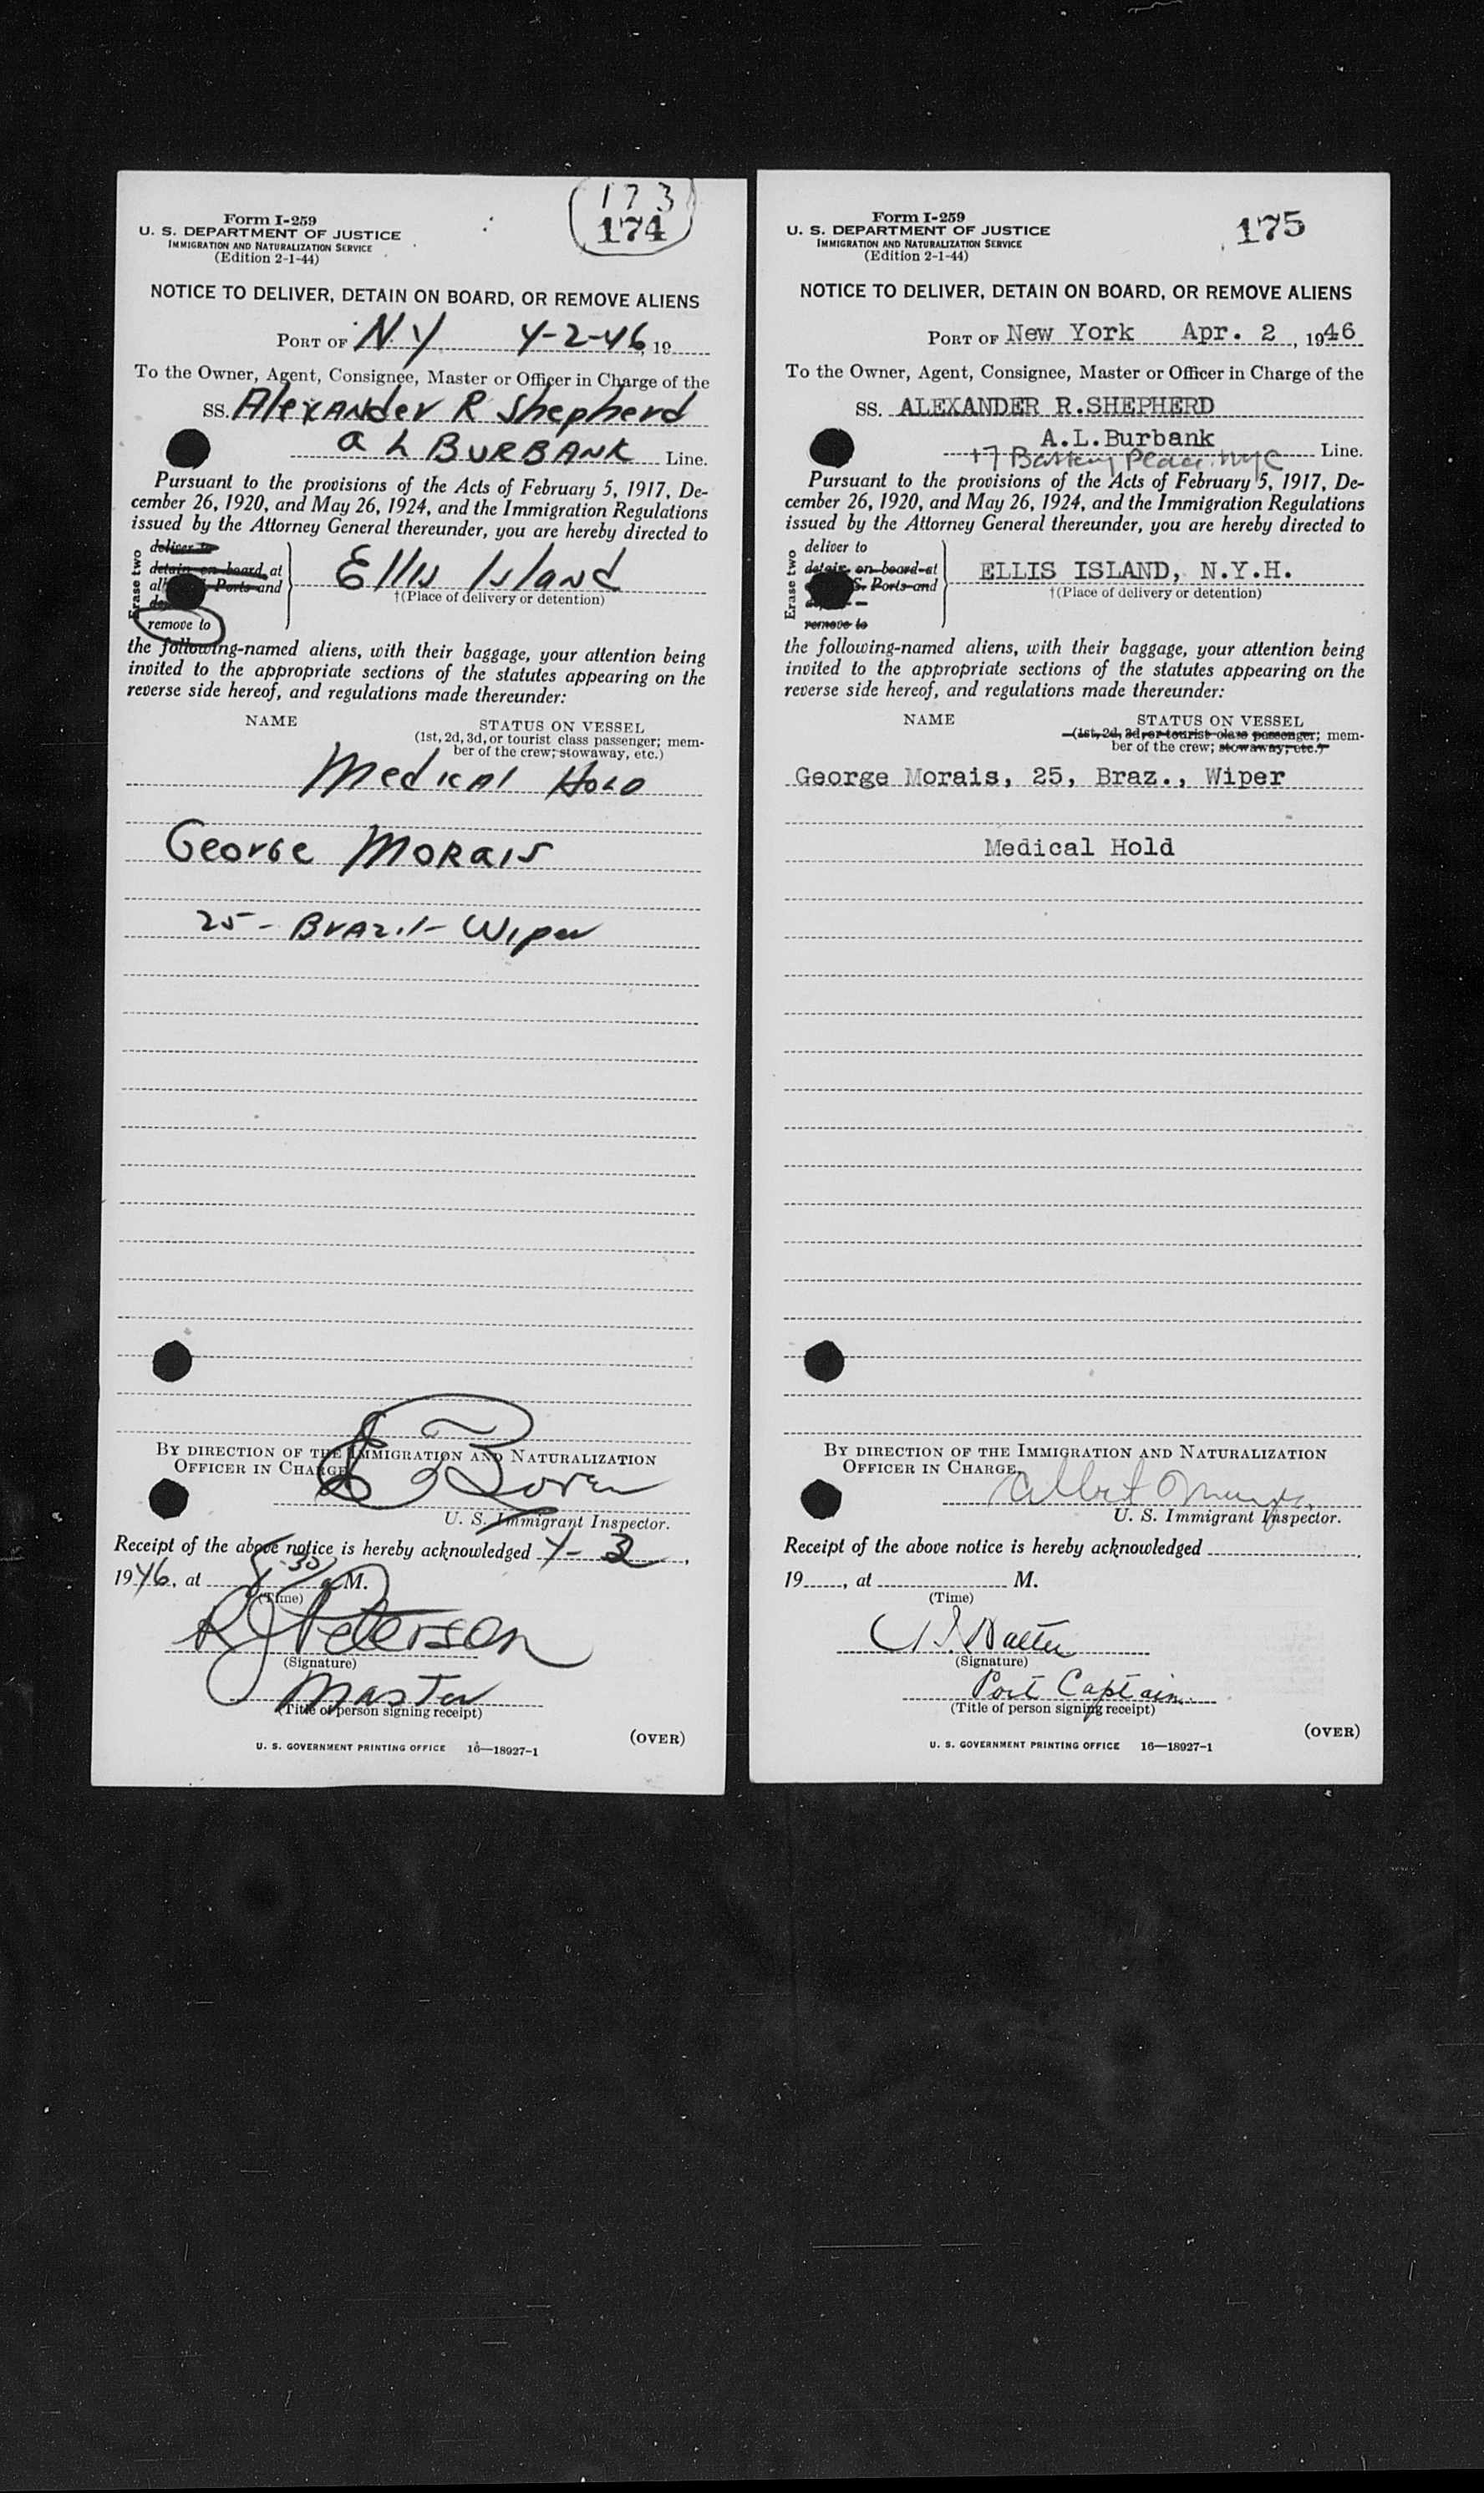 173
174
Form I-259
U. S. DEPARTMENT OF JUSTICE
IMMIGRATION AND NATURALIZATION SERVICE
(Edition 2-1-44)
NOTICE TO DELIVER, DETAIN ON BOARD, OR REMOVE ALIENS
PORT OF N.Y 4-2-46, 19
To the Owner, Agent, Consignee, Master or Officer in Charge of the
SS. Alexander R Shepherd
A L BURBANK Line.
Pursuant to the provisions of the Acts of February 5, 1917, De-
cember 26, 1920, and May 26, 1924, and the Immigration Regulations
issued by the Attorney General thereunder, you are hereby directed to
Erase two
deliver to
detain on board at
Ports and
remove to
Ellis Island
†(Place of delivery or detention)
the following-named aliens, with their baggage, your attention being
invited to the appropriate sections of the statutes appearing on the
reverse side hereof, and regulations made thereunder:
NAME STATUS ON VESSEL
(1st, 2d, 3d, or tourist class passenger; mem-
ber of the crew; stowaway, etc.)
Medical Hold
George Morais
25 - Brazil - Wiper
BY DIRECTION OF THE IMMIGRATION AND NATURALIZATION
OFFICER IN CHARGE
U. S. Immigrant Inspector.
Receipt of the above notice is hereby acknowledged 4-
1946, at 30 M.
(Time)
R J Peterson
(Signature)
Master
(Title of person signing receipt)
(OVER)
U. S. GOVERNMENT PRINTING OFFICE 16—18927-1
175
Form I-259
U. S. DEPARTMENT OF JUSTICE
IMMIGRATION AND NATURALIZATION SERVICE
(Edition 2-1-44)
NOTICE TO DELIVER, DETAIN ON BOARD, OR REMOVE ALIENS
PORT OF New York Apr. 2, 1946
To the Owner, Agent, Consignee, Master or Officer in Charge of the
SS. ALEXANDER R.SHEPHERD
A.L.Burbank Line.
17 Battery Place. NYC
Pursuant to the provisions of the Acts of February 5, 1917, De-
cember 26, 1920, and May 26, 1924, and the Immigration Regulations
issued by the Attorney General thereunder, you are hereby directed to
Erase two
deliver to
detain on board at
S. Ports and
remove to
ELLIS ISLAND, N.Y.H.
†(Place of delivery or detention)
the following-named aliens, with their baggage, your attention being
invited to the appropriate sections of the statutes appearing on the
reverse side hereof, and regulations made thereunder:
NAME STATUS ON VESSEL
(1st, 2d, 3d, or tourist class passenger; mem-
ber of the crew; stowaway, etc.)
George Morais, 25, Braz., Wiper
Medical Hold
BY DIRECTION OF THE IMMIGRATION AND NATURALIZATION
OFFICER IN CHARGE.
Albert
U. S. Immigrant Inspector.
Receipt of the above notice is hereby acknowledged
19, at M.
(Time)
(Signature)
Port Captain
(Title of person signing receipt)
(OVER)
U. S. GOVERNMENT PRINTING OFFICE 16—18927-1